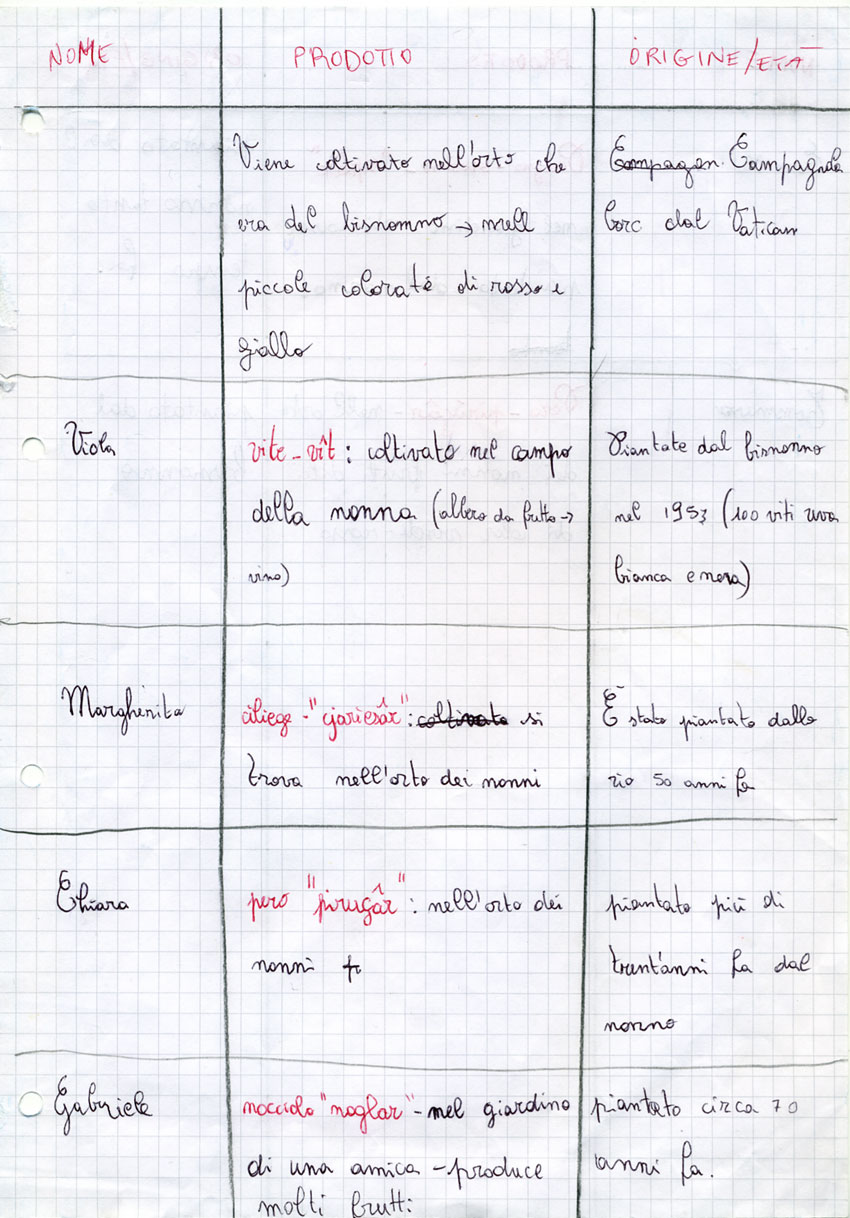 NOME PRODOTTO ORIGINE/ETÀ
Viene coltivato nell'orto che
era del bisnonno → mell
piccole colorate di rosso e
giallo
Campagnola
dal Vatican
Viola
vite - vît : coltivato nel campo
della nonna (albero da frutto →
vino)
Piantate dal bisnonno
nel 1953 (100 viti uva
bianca e nera)
Margherita
ciliege - "cjariesâr" : coltivato si
trova nell'orto dei nonni
È stato piantato dallo
zio 50 anni fa
Chiara
pero "pirugâr" : nell'orto dei
nonni
piantato più di
trent'anni fa dal
nonno
Gabriele
nocciolo "noglar" - nel giardino
di una amica - produce
molti frutti
piantato circa 70
anni fa.